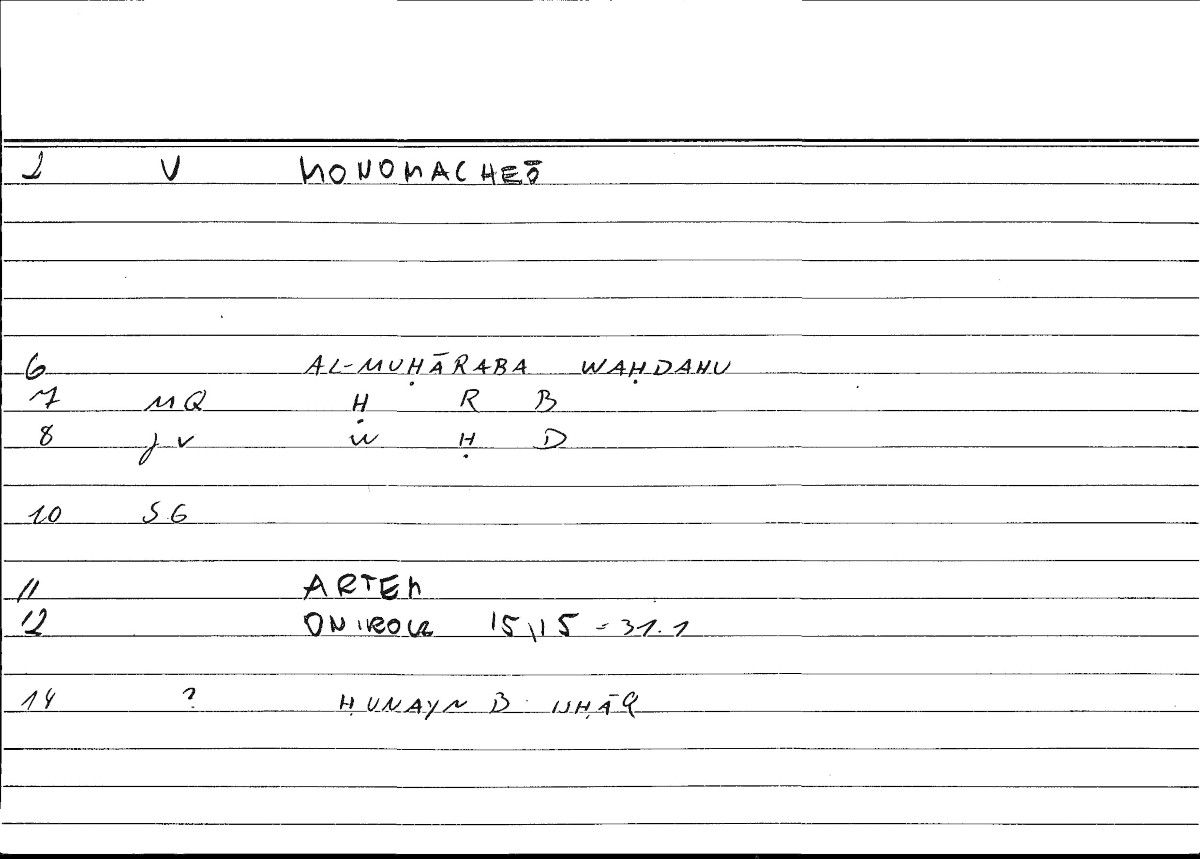 2 V MONOMACHEŌ
6 AL-MUḤĀRABA WAḤDAHU
7 MQ Ḥ R B
8 jv W Ḥ D
10 SG
11 ARTEM
12 ONIROCR 15,15 = 31.1
14 ? ḤUNAYN B. ISḤĀQ